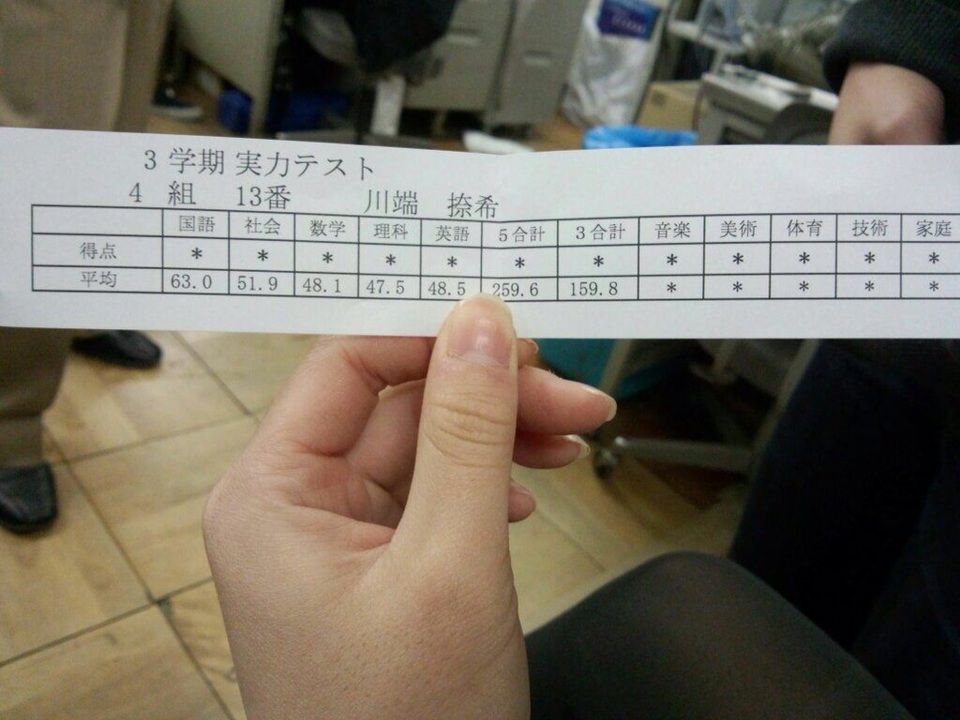 3 学期 実力テスト
4 組 13番 川端 捺希
国語 社会 数学 理科 英語 5合計 3合計 音楽 美術 体育 技術 家庭
得点 * * * * * * * * * * * *
平均 63.0 51.9 48.1 47.5 48.5 259.6 159.8 * * * * *